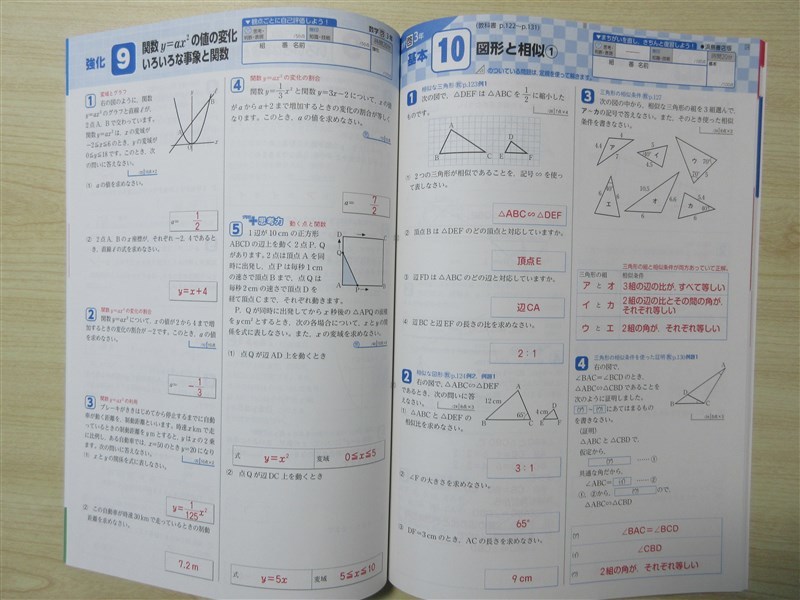 強化 9 関数 y=ax² の値の変化
いろいろな事象と関数
▼観点ごとに自己評価しよう!
数学 3年
組 番 名前
1 変域とグラフ
右の図のように、関数
y=ax² のグラフと直線ℓが、
2点A、Bで交わっています。
関数 y=ax² は、xの変域が
−2≦x≦6のとき、yの変域が
0≦y≦18です。このとき、次
の問いに答えなさい。
(1) aの値を求めなさい。
a= 1/2
(2) 2点A、Bのx座標が、それぞれ−2、4であると
き、直線ℓの式を求めなさい。
y=x+4
2 関数y=ax²の変化の割合
関数 y=ax² について、xの値が2から4まで増
加するときの変化の割合が−2です。このとき、aの値
を求めなさい。
a= −1/3
3 関数y=ax²の利用
ブレーキがききはじめてから停止するまでに自動
車の動く距離を、制動距離といいます。時速xkmで走
っているときの制動距離をymとすると、yはxの2乗
に比例し、ある自動車では、x=50のときy=20になり
ます。次の問いに答えなさい。
(1) xとyの関係を式に表しなさい。
y=1/125 x²
(2) この自動車が時速30kmで走っているときの制動
距離を求めなさい。
7.2m
4 関数y=ax²の変化の割合
関数 y=1/3 x² と関数 y=3x−2について、xの値
がaからa+2まで増加するときの変化の割合が等しく
なります。このとき、aの値を求めなさい。
a= 7/2
5 +思考力 動く点と関数
1辺が10cmの正方形
ABCDの辺上を動く2点P、Q
があります。2点は頂点Aを同
時に出発し、点Pは毎秒1cm
の速さで頂点Bまで、点Qは
毎秒2cmの速さで頂点Dを
経て頂点Cまで、それぞれ動きます。
P、Qが同時に出発してからx秒後の△APQの面積
をycm²とするとき、次の各場合について、xとyの関
係を式に表しなさい。また、xの変域を求めなさい。
D C
Q
A P B
(1) 点Qが辺AD上を動くとき
式 y=x² 変域 0≦x≦5
(2) 点Qが辺DC上を動くとき
式 y=5x 変域 5≦x≦10
(教科書 p.122〜p.131)
3年
基本 10 図形と相似①
▼まちがいを直し、きちんと復習しよう!
組 番 名前
のついている問題は、定規を使って解きましょう。
1 相似な三角形
次の図で、△DEFは△ABCを1/2に縮小した
ものです。
A
B C
D
E F
(1) 2つの三角形が相似であることを、記号∽を使っ
て表しなさい。
△ABC∽△DEF
(2) 頂点Bは△DEFのどの頂点と対応していますか。
頂点E
(3) 辺FDは△ABCのどの辺と対応していますか。
辺CA
(4) 辺BCと辺EFの長さの比を求めなさい。
2:1
2 相似な図形
右の図で、△ABC∽△DEF
であるとき、次の問いに答
えなさい。
(1) △ABCと△DEFの
相似比を求めなさい。
A
12cm
65°
B C
D
4cm
E F
3:1
(2) ∠Fの大きさを求めなさい。
65°
(3) DF=3cmのとき、ACの長さを求めなさい。
9cm
3 三角形の相似条件
次の図の中から、相似な三角形の組を3組選んで、
ア〜カの記号で答えなさい。また、そのとき使った相似
条件を書きなさい。
ア
イ
ウ
エ
オ
カ
三角形の組と相似条件が両方あっていて正解。
三角形の組 相似条件
ア と オ 3組の辺の比が、すべて等しい
イ と カ 2組の辺の比とその間の角が、
それぞれ等しい
ウ と エ 2組の角が、それぞれ等しい
4 三角形の相似条件を使った証明
右の図で、
∠BAC=∠BCDのとき、
△ABC∽△CBDであることを
次のように証明しました。
にあてはまるもの
を書きなさい。
(証明)
△ABCと△CBDで、
仮定から、
(ア) ……①
共通な角だから、
∠ABC= (イ) ……②
①、②から、 (ウ) ので、
△ABC∽△CBD
(ア) ∠BAC=∠BCD
(イ) ∠CBD
(ウ) 2組の角が、それぞれ等しい